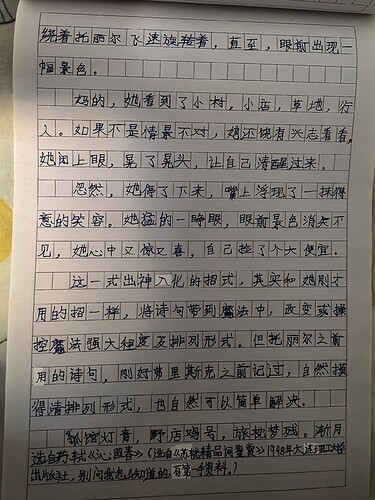 绕着托丽尔飞速旋转着，直至，眼前出现一
幅景色。
妈的，她看到了小村，小店，草地，行
人。如果不是情景不对，她还饶有兴志看看。
她闭上眼，晃了晃头，让自己清醒过来。
忽然，她停了下来，嘴上浮现了一抹得
意的笑容。她猛的一睁眼，眼前景色消失不
见，她心中又惊又喜，自己捡了个大便宜。
这一式出神入化的招式，其实和她刚才
用的招一样，将诗句带到魔法中，改变或操
控魔法强大程度及排列形式。但托丽尔之前
用的诗句，刚好弗里斯克之前记过，自然摸
得清排列形式，也自然可以简单解决。
孤馆灯青，野店鸡号，旅枕梦残。渐月
选自苏轼《沁园春》（选自《苏轼精品词鉴赏》1998年大连理工大学
出版社，别问我怎么知道的，有第一手资料。）